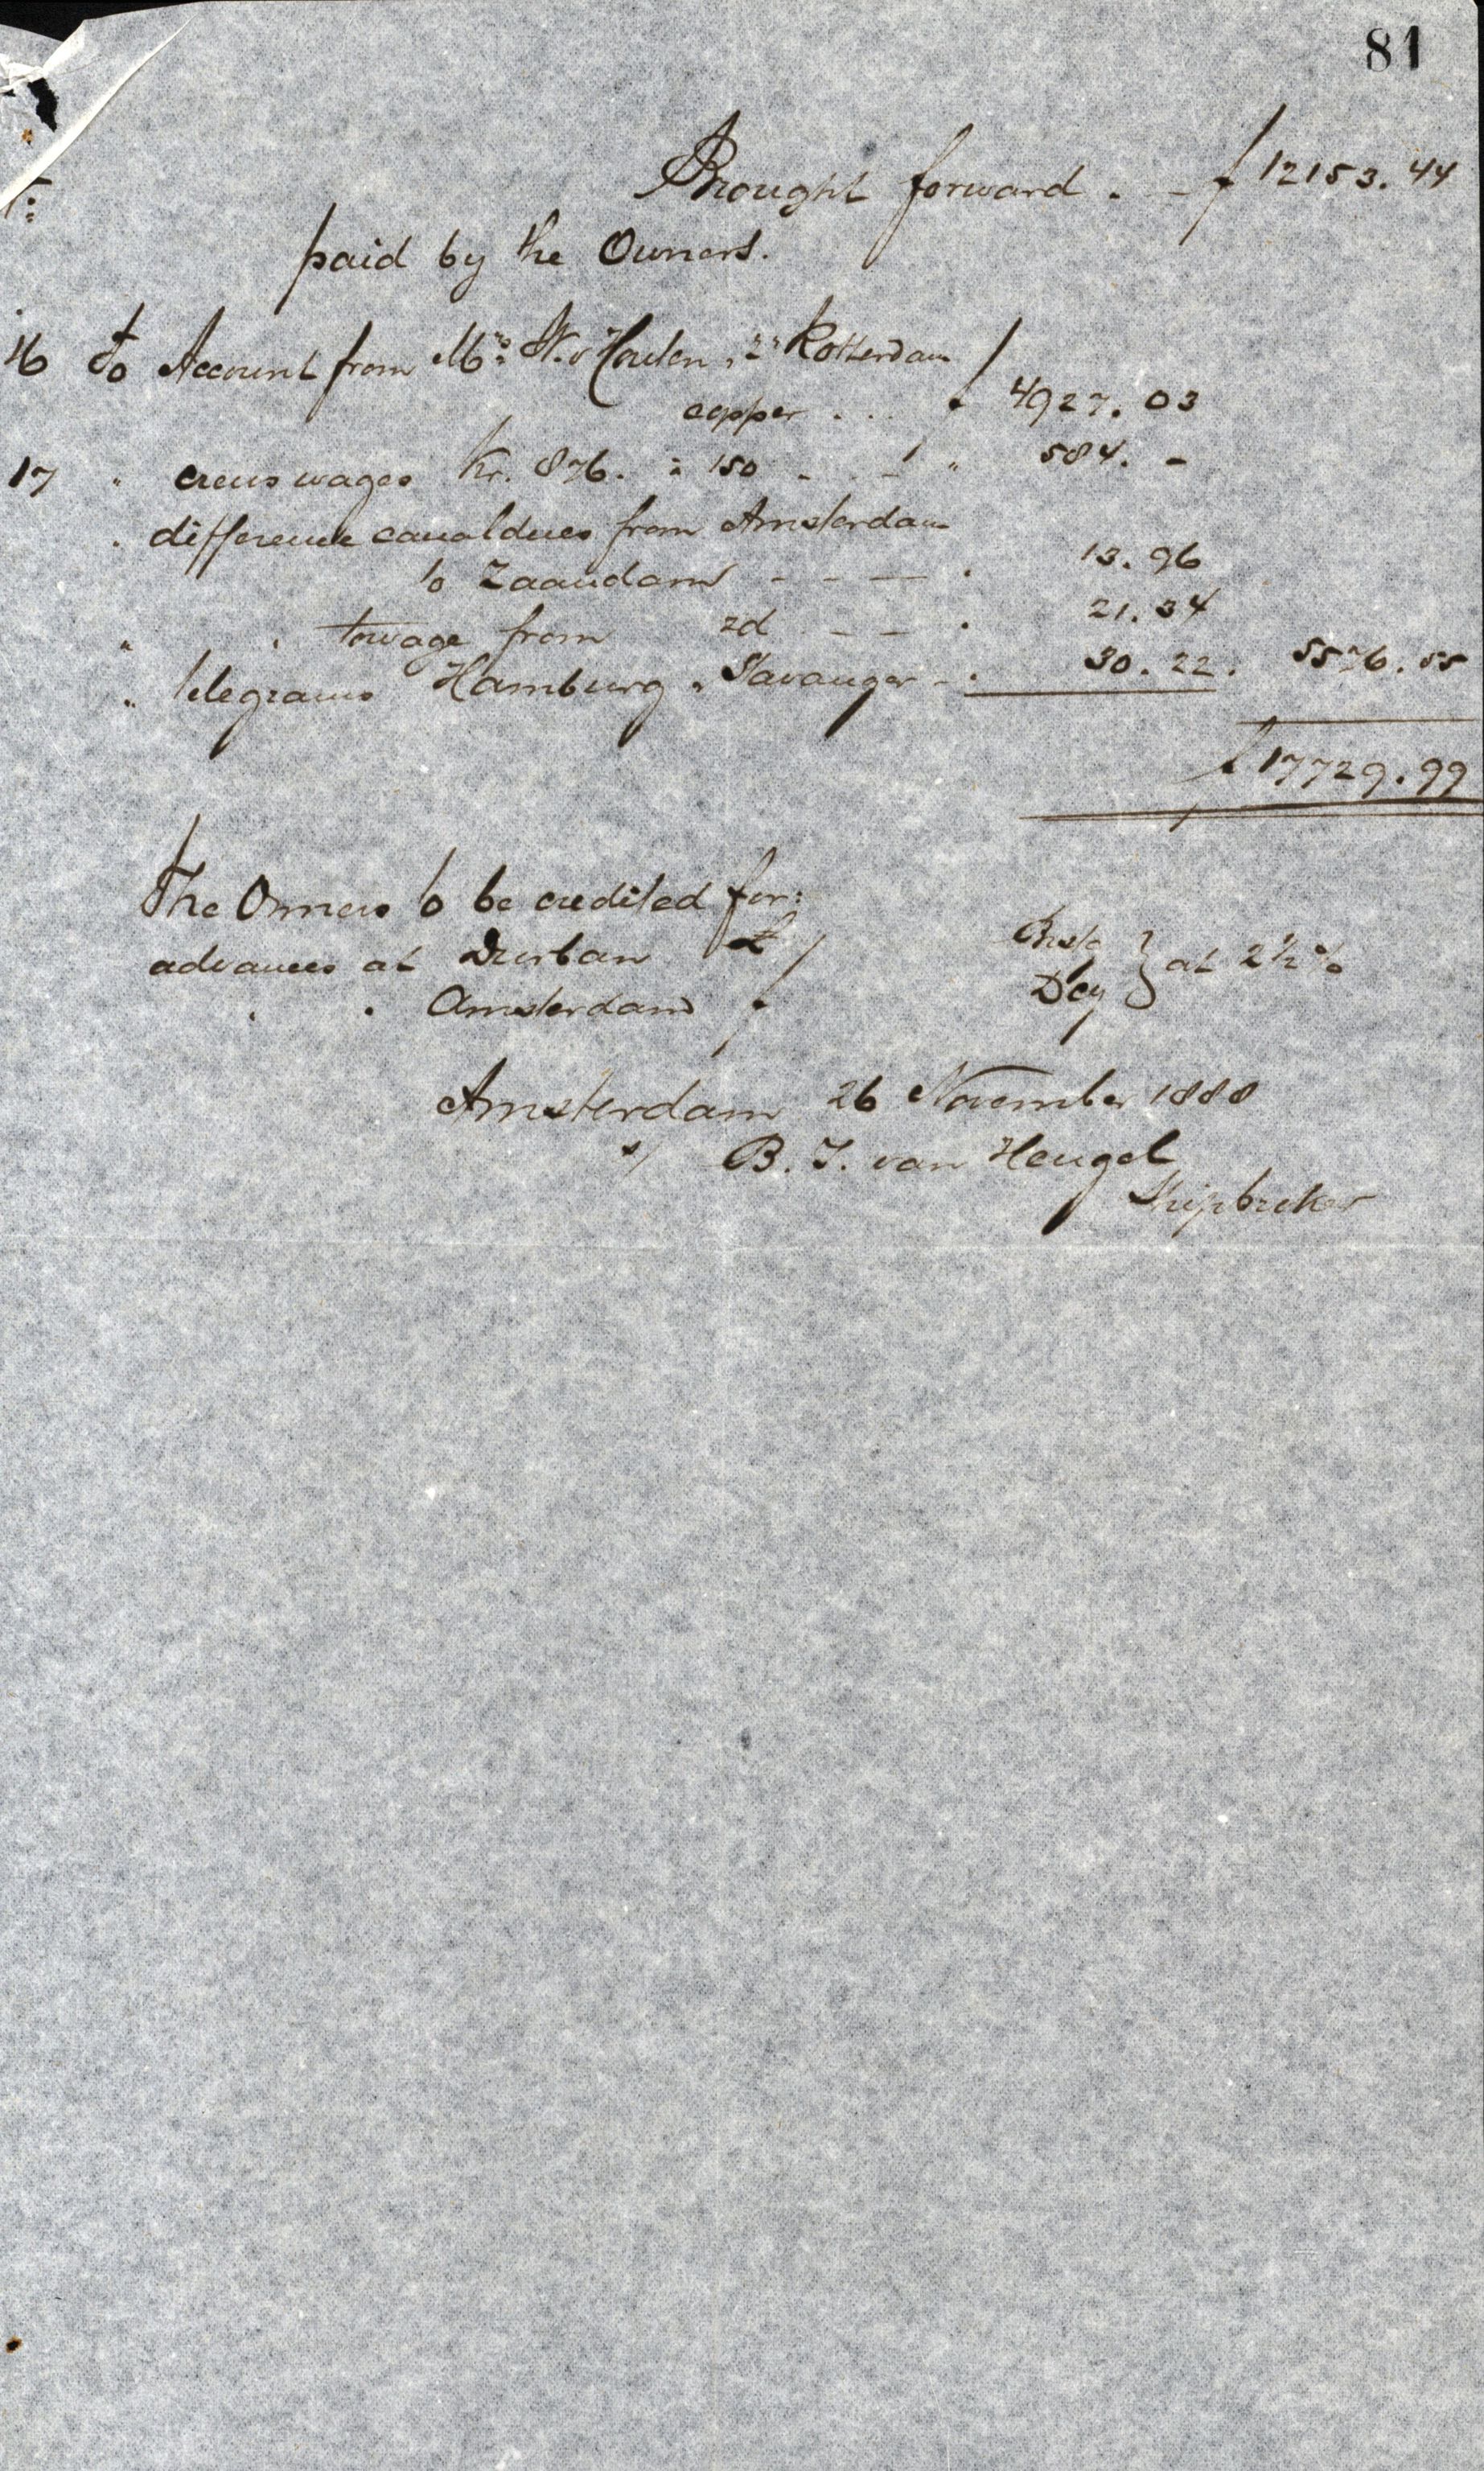 81
Brought forward . - f 12153.44
paid by the Owners.
16 To Account from Mrs: W. v Houten, Zn Rotterdam
copper . . . f 4927.03
17 " crews wages Kr. 876. à 150 - - " 584. -
. difference canaldues from Amsterdam
to Zaandam - - - . 13.96
" . towage from zd - - . 21.34
" telegrams Hamburg " Stavanger - . 30.22. 5576.55
f 17729.99
The Owners to be credited for:
advances at Durban £
" . Amsterdam f
} at 2½%
Amsterdam 26 November 1888
s/ B. J. van Hengel
Shipbroker